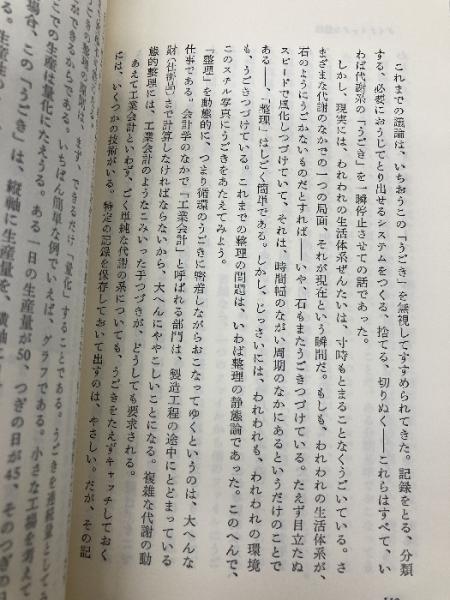 これまでの議論は、いちおうこの「うごき」を無視してすすめられてきた。記録をとる、分類
する、必要におうじてとり出せるシステムをつくる、捨てる、切りぬく――これらはすべて、い
わば代謝系の「うごき」を一瞬停止させての話であった。
しかし、現実には、われわれの生活体系ぜんたいは、寸時もとまることなくうごいている。さ
まざまな代謝のなかでの一つの局面、それが現在という瞬間だ。もしも、われわれの生活体系が、
石のようにうごかないものだとすれば――いや、石もまたうごきつづけている。たえず目立たぬ
スピードで風化しつづけていて、それは、時間幅のながい周期のなかにあるというだけのことで
ある――、「整理」はしごく簡単である。しかし、じっさいには、われわれも、われわれの環境
も、うごきつづけている。これまでの整理の問題は、いわば整理の静態論であった。このへんで、
このスチル写真にうごきをあたえてみよう。
「整理」を動態的に、つまり循環のうごきに密着しながらおこなってゆくというのは、大へんな
仕事である。会計学のなかで「工業会計」と呼ばれる部門は、製造工程の途中にとどまっている
財（仕掛品）まで計算しなければならないから、大へんにややこしいことになる。複雑な代謝の動
態的整理には、工業会計のようなこみいった手つづきが、どうしても要求される。
あえて工業会計といわず、ごく単純な代謝の系についても、うごきをたえずキャッチしておく
には、いくつかの技術がいる。特定の記録を保存しておいて出すのは、やさしい。だが、その記
まず、できるだけ「量化」することである。うごきを連続量としてとら
ができるからである。いちばん簡単な例でいえば、グラフである。小さな工場を考えて
この生産は量化になじみやすい。ある一日の生産量が50、つぎの日が45、そのつぎの日
場合、この「うごき」は、縦軸に生産量を、横軸に